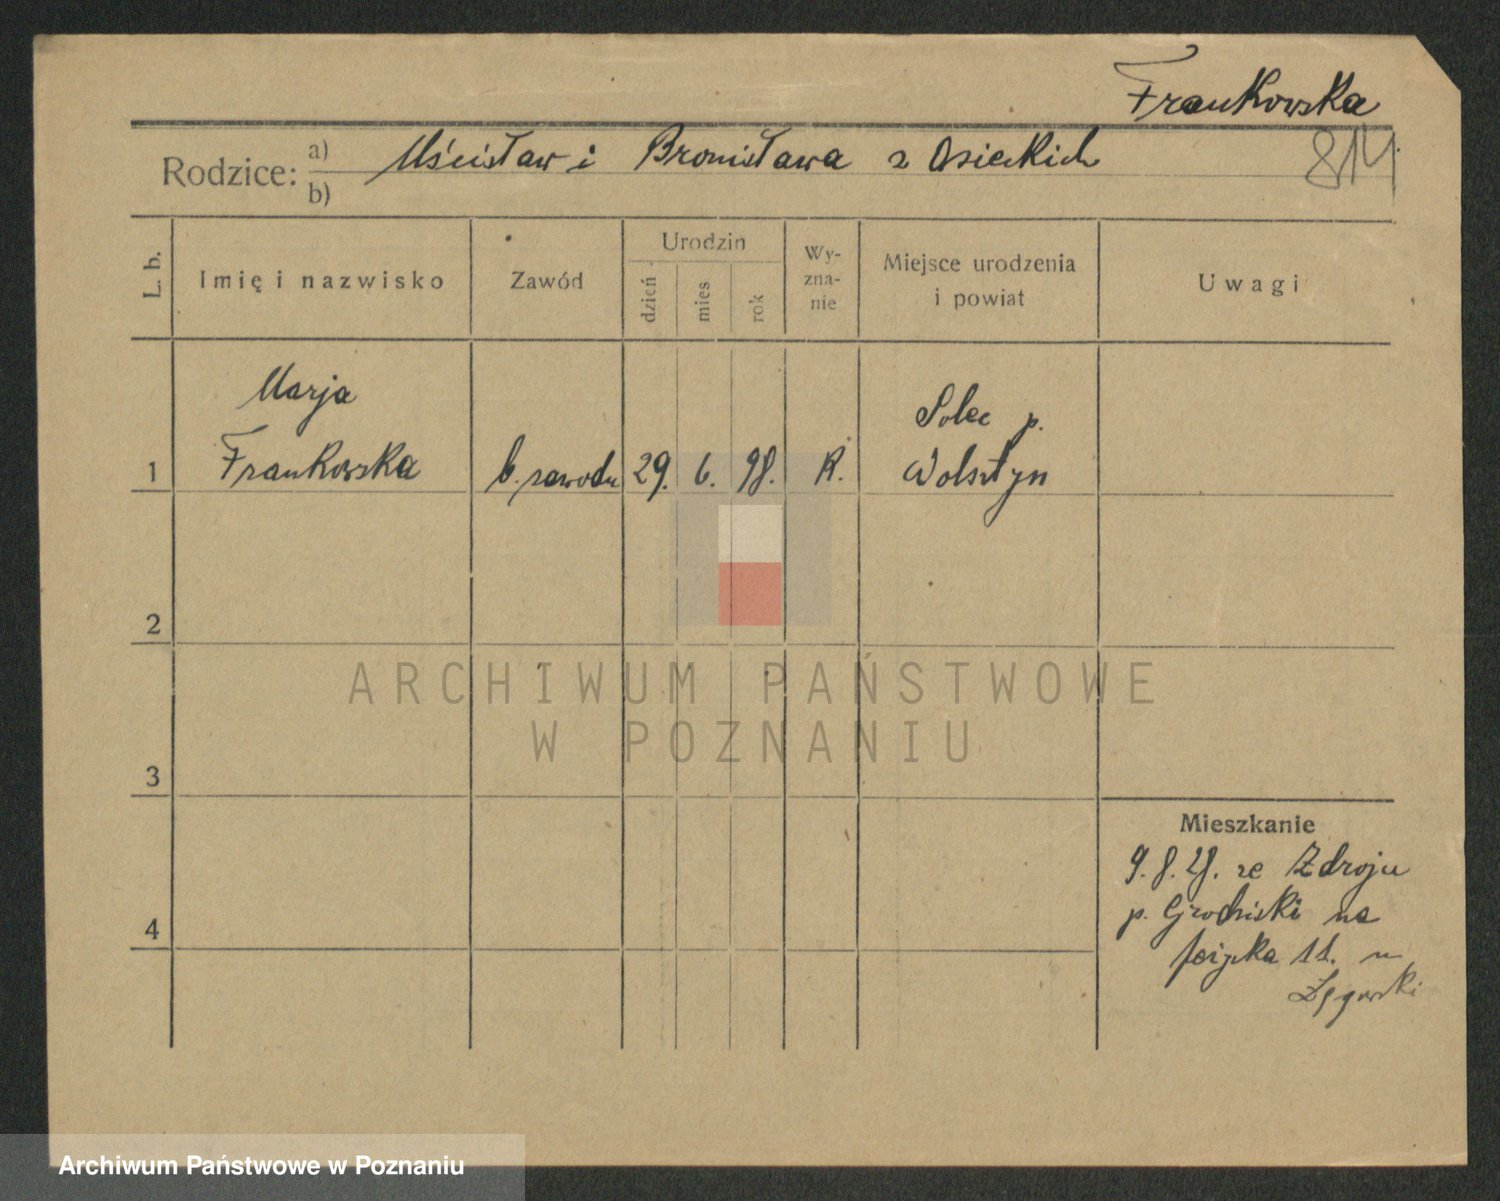 Frankowska
814
Rodzice: a) Mścisław i Bronisława z Osieckich
b)
L. b.
Imię i nazwisko
Zawód
Urodzin
dzień
mies
rok
Wy-
zna-
nie
Miejsce urodzenia
i powiat
Uwagi
Marja
Frankowska
1
b. zawodu
29. 6. 98.
R.
Solec p.
Wolsztyn
2
3
4
Mieszkanie
9.8.28. ze Zdroju
p. Grodziski na
11. u
ARCHIWUM PAŃSTWOWE
W POZNANIU
Archiwum Państwowe w Poznaniu